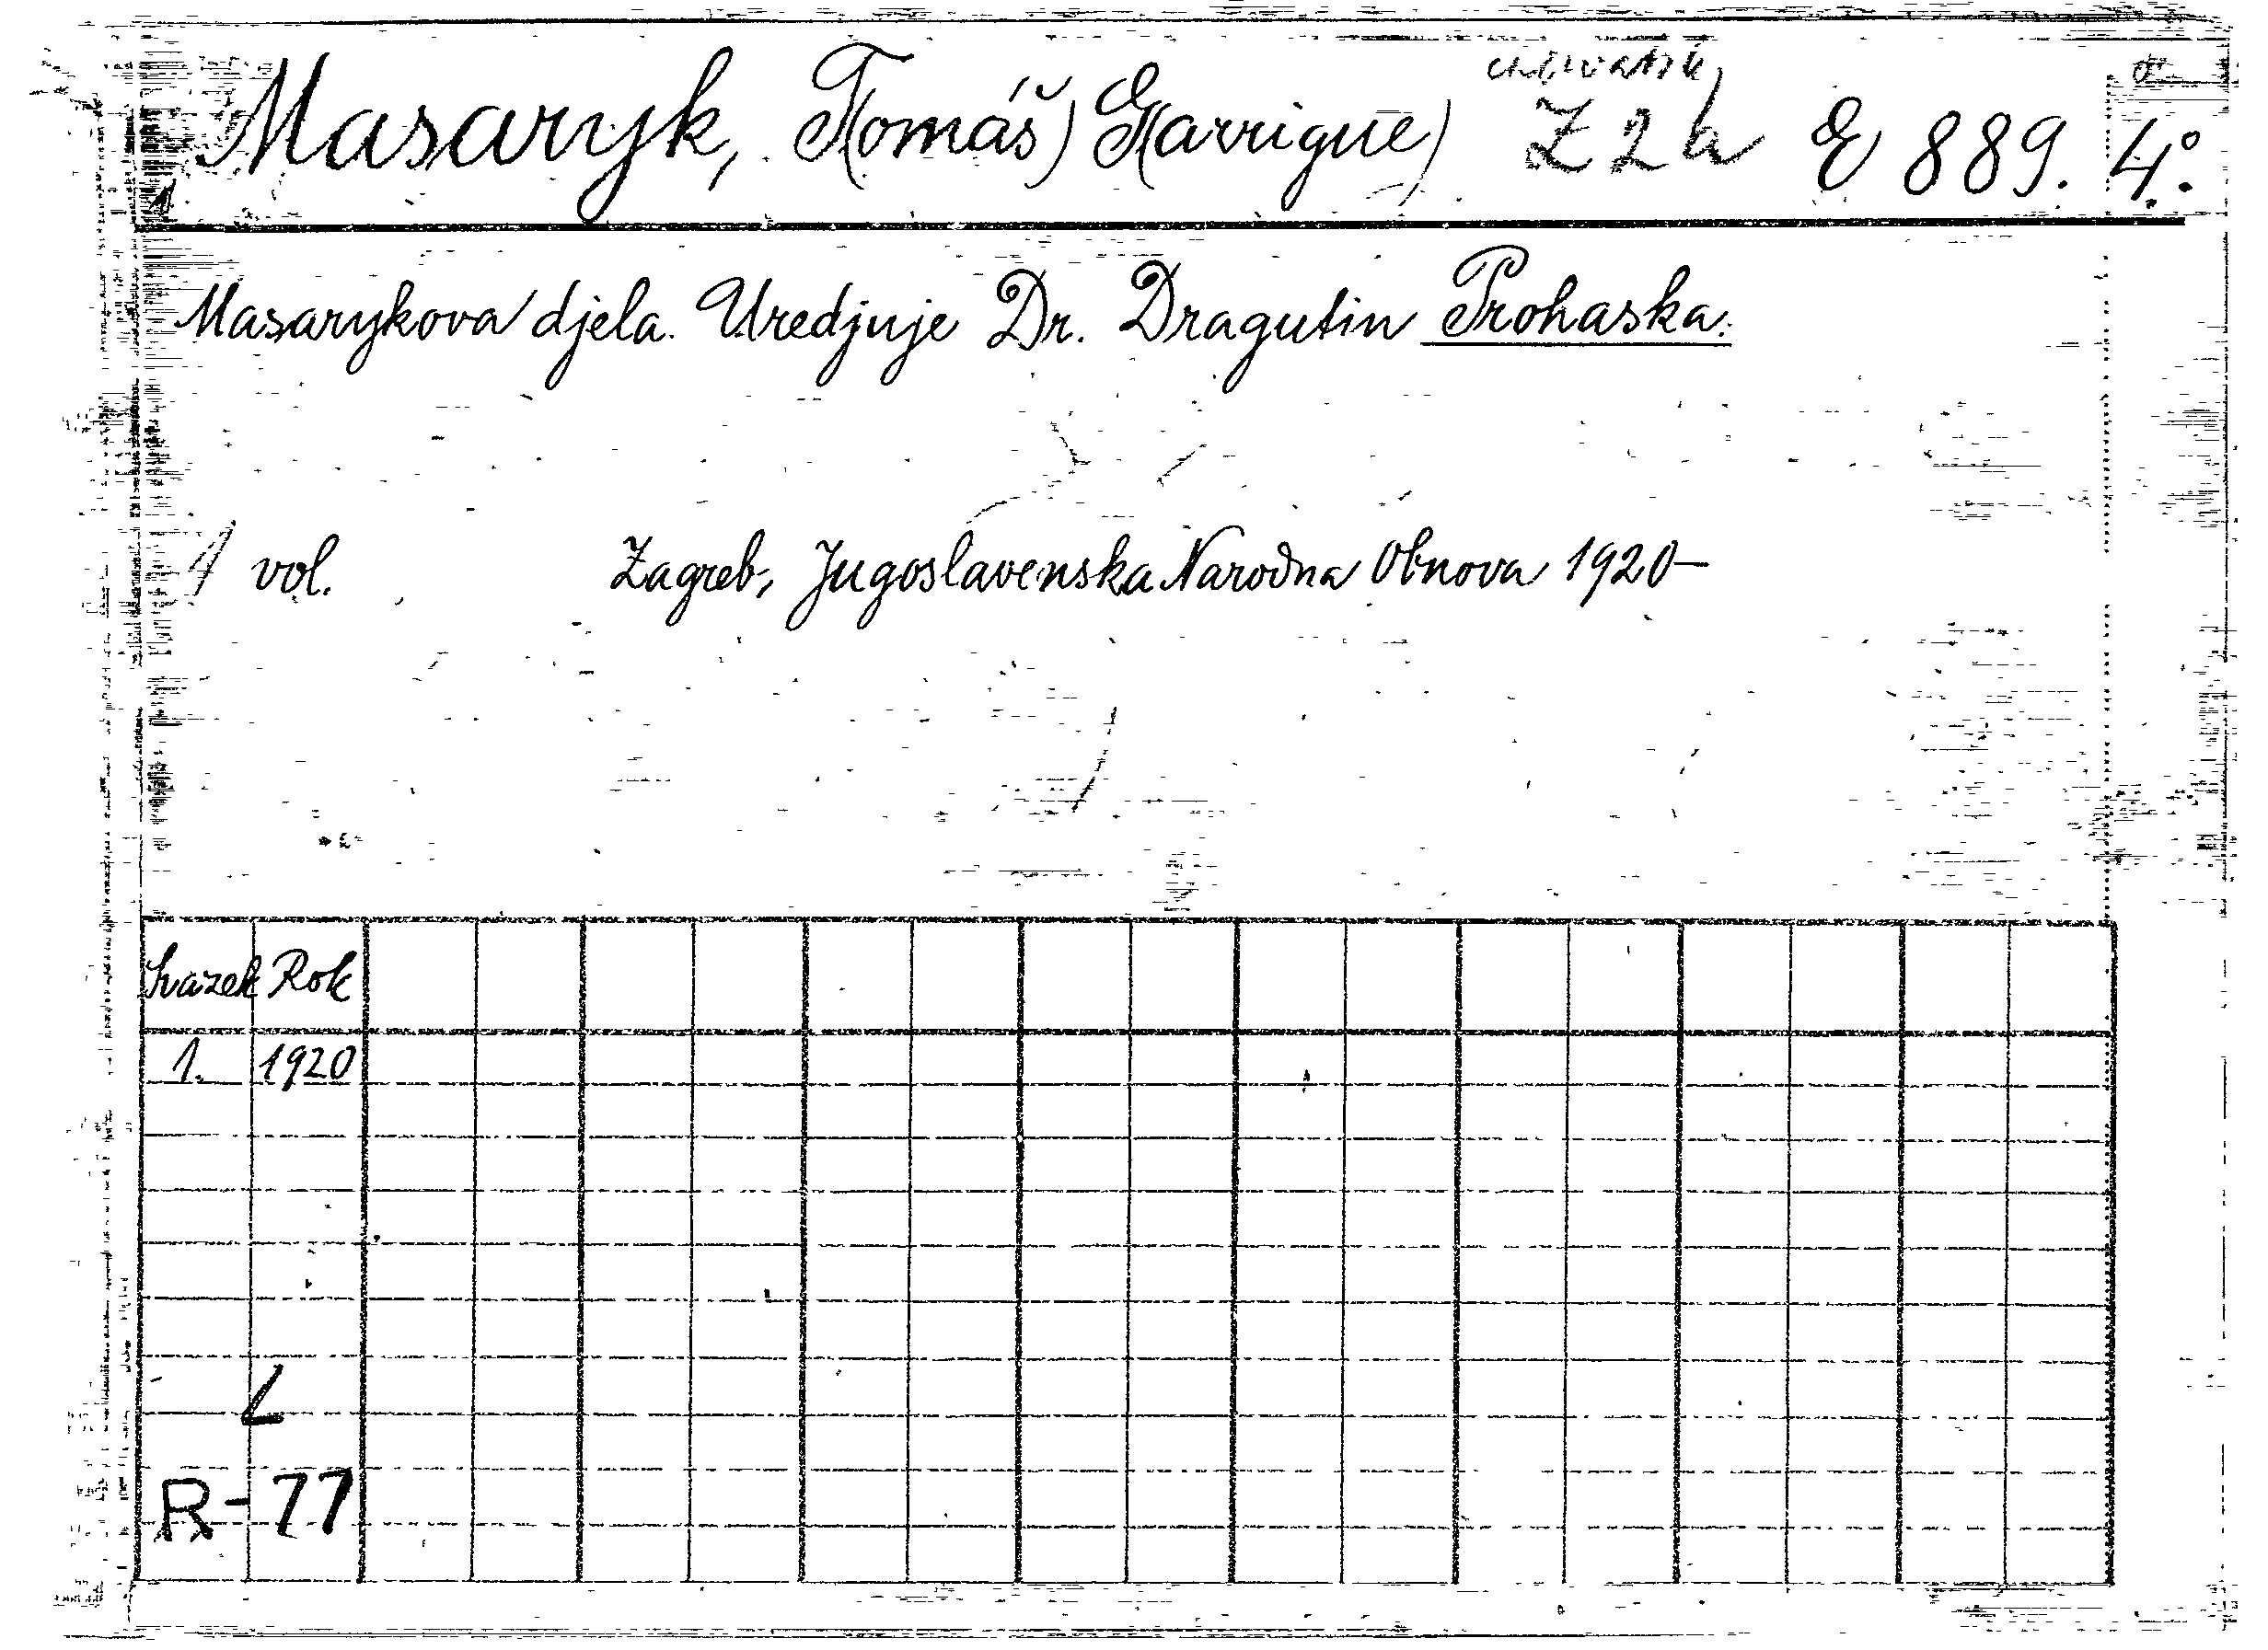 Masaryk, T(omáš) G(arrigue) Z 2 h E 889. 4º.
Masarykova djela. Uredjuje Dr. Dragutin Prohaska.
1 vol. Zagreb, Jugoslavenska Narodna Obnova 1920-
Svazek Rok
1. 1920
R-77